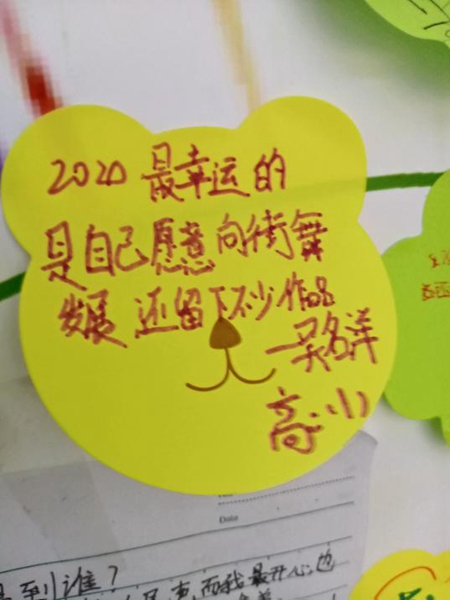 2020 最幸运的
是自己愿意向街舞
发展 还留下不少作品
—吴名洋
高小
Date
到谁?
而我最开心